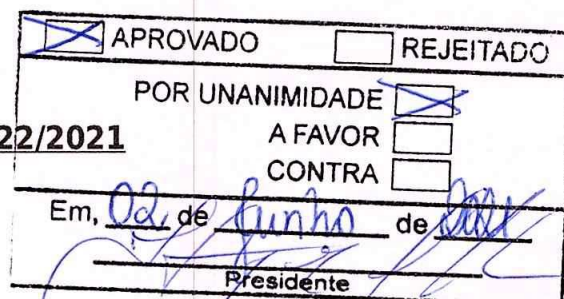 APROVADO REJEITADO
POR UNANIMIDADE
22/2021
A FAVOR
CONTRA
Em, 02 de Junho de 2021
Presidente